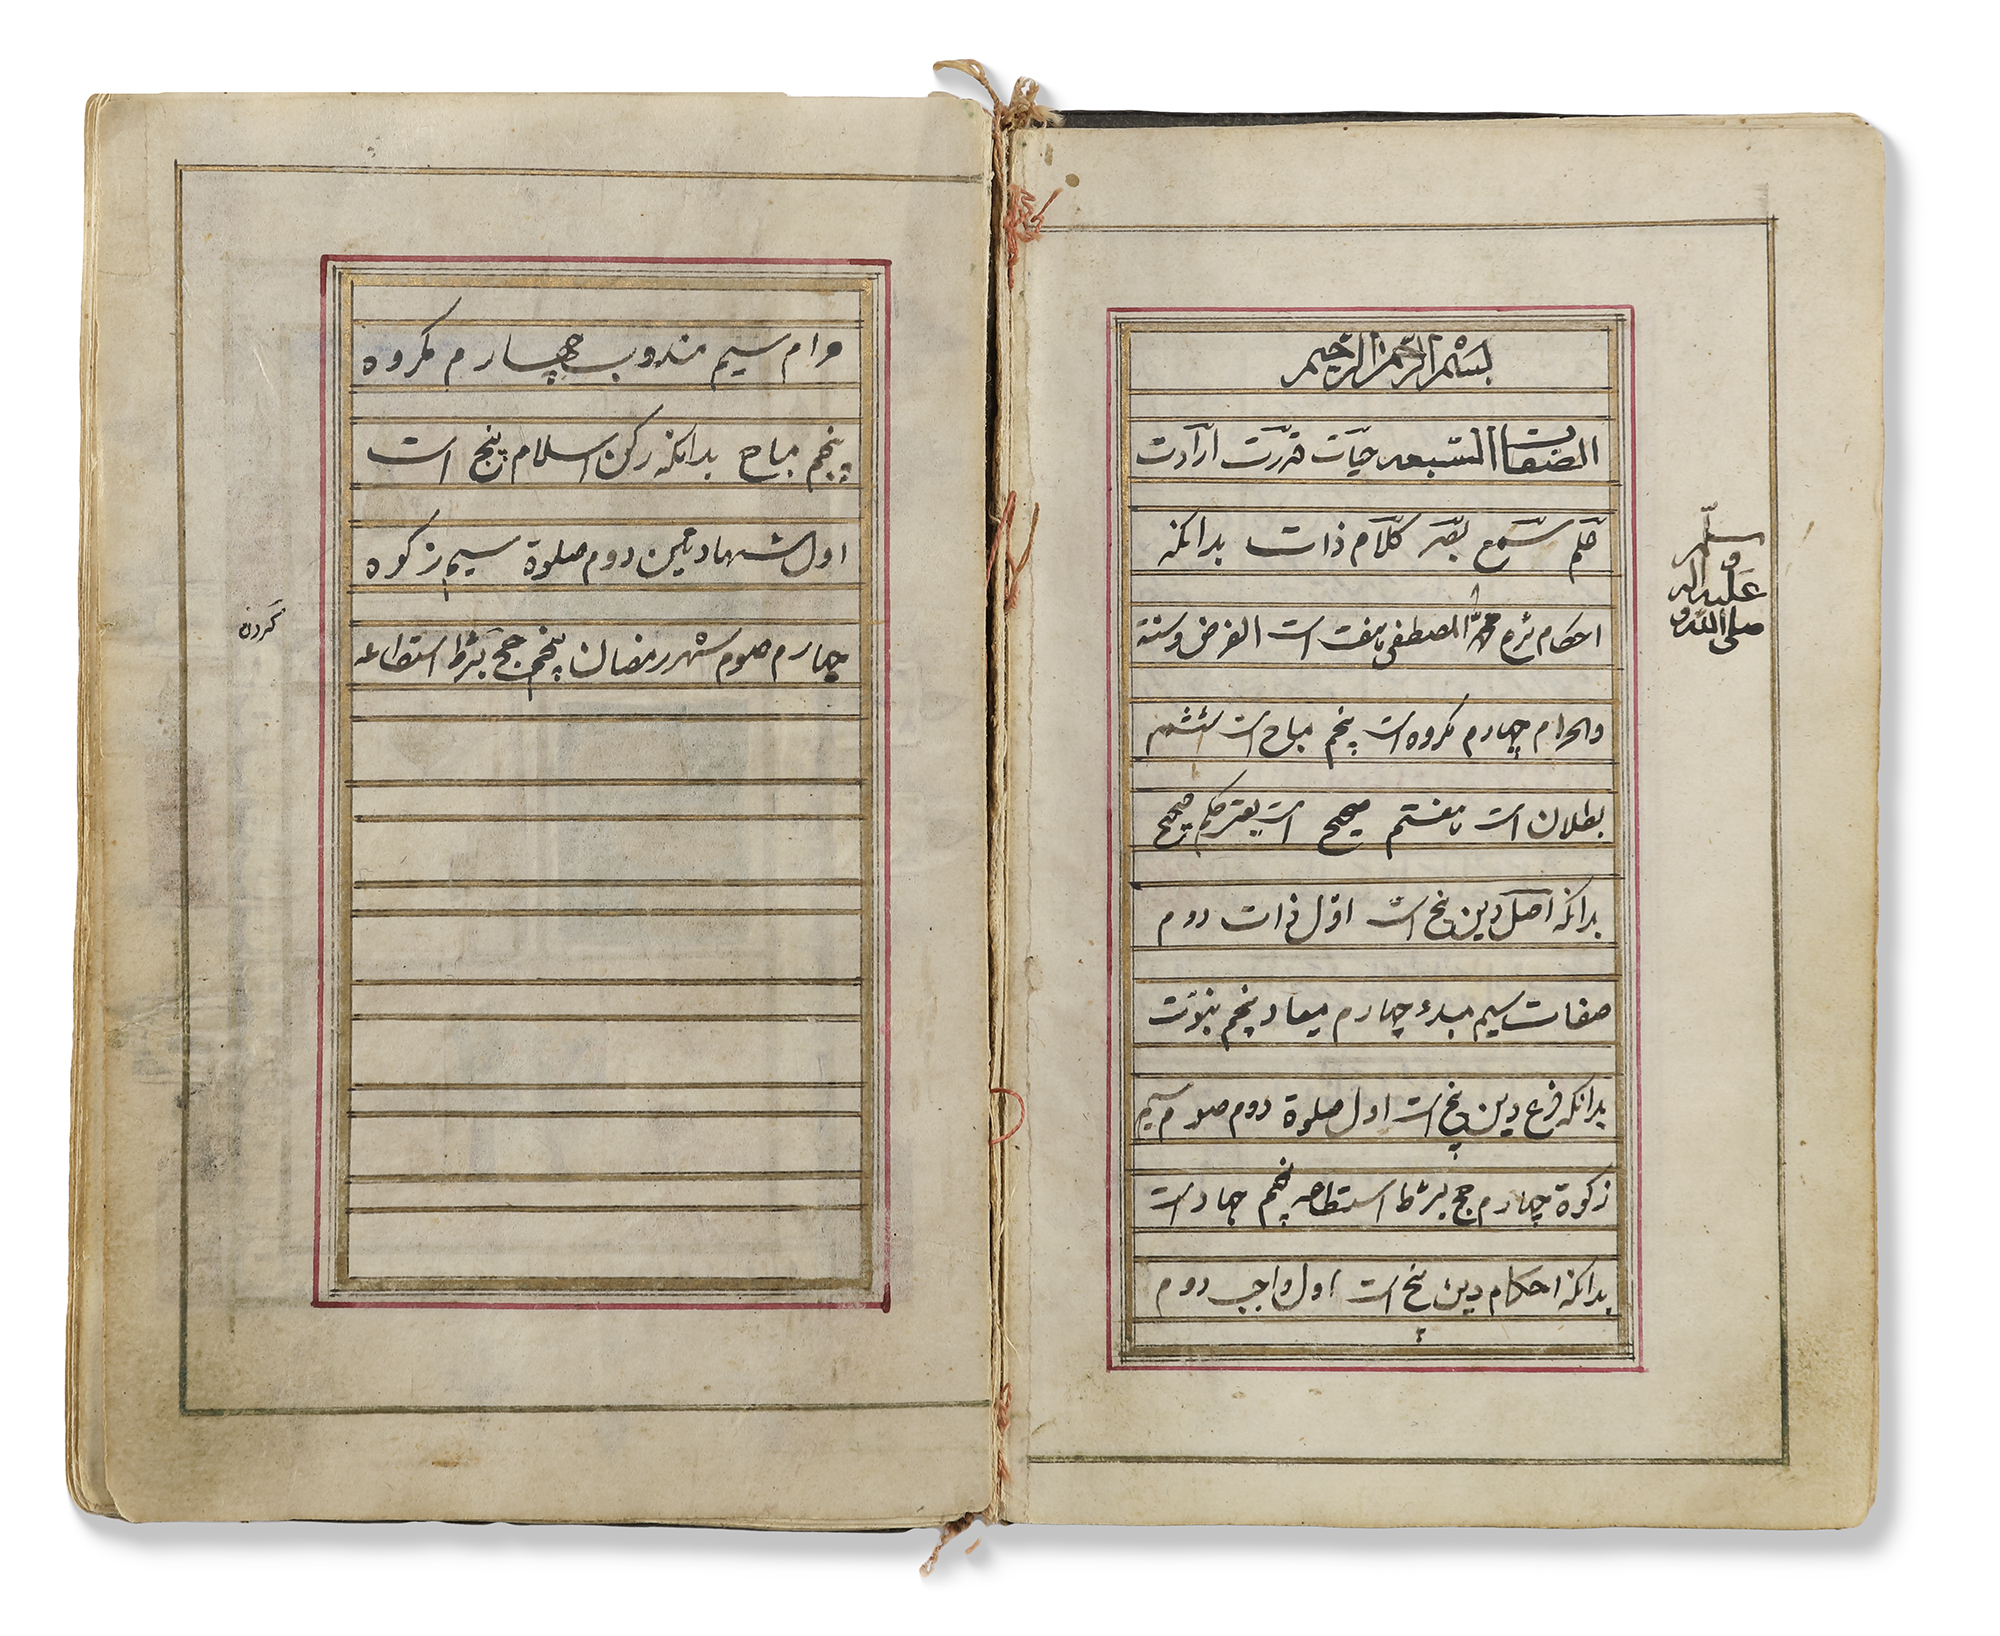 بسم الله الرحمن الرحیم
الصفات السبعه حیات قدرت ارادت
علم سمع بصر کلام ذات بدانکه
احکام شرع محمد المصطفی هفت است الفرض و سنة
والحرام چهارم مکروه است پنجم مباح است ششم
بطلان است هفتم صحیح است حکم صحیح
بدانکه اصل دین پنج است اول ذات دوم
صفات سیم مبدء چهارم میعاد پنجم نبوّت
بدانکه فرع دین پنج است اول صلوة دوم صوم سیم
زکوة چهارم حج بشرط استطاعه پنجم جهاد است
بدانکه احکام دین پنج است اول واجب دوم
۲
صلی الله
علیه و اله
و
سلّم
حرام سیم مندوب چهارم مکروه
پنجم مباح بدانکه رکن اسلام پنج است
اول شهادتین دوم صلوة سیم زکوه
چهارم صوم شهر رمضان پنجم حج بشرط استطاعه
کردن